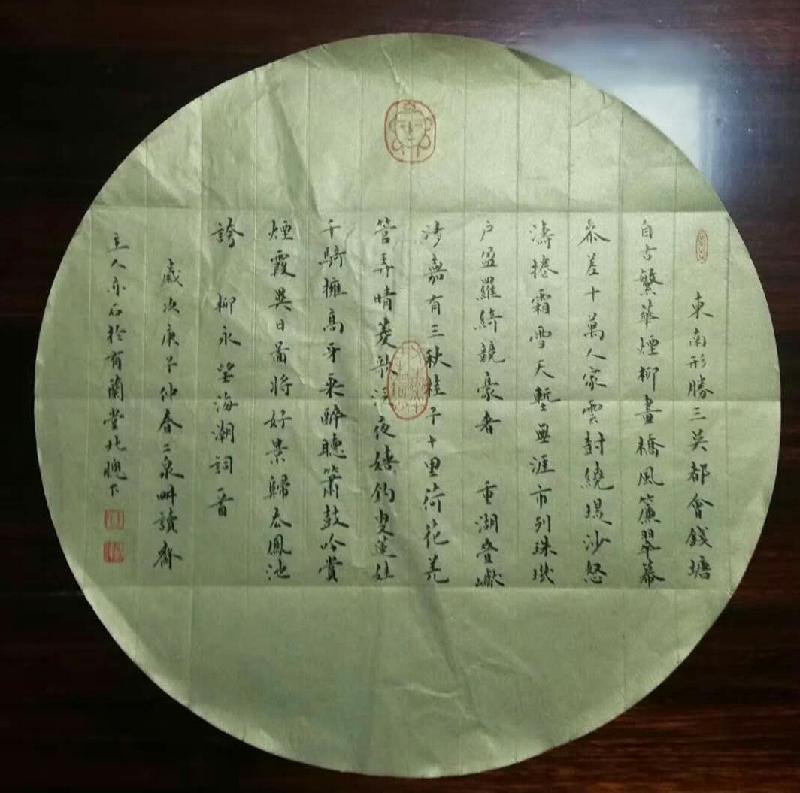 東南形勝三吴都會錢塘
自古繁華煙柳畫橋風簾翠幕
參差十萬人家雲封繞堤沙怒
濤捲霜雪天塹無涯市列珠璣
户盈羅綺競豪奢 重湖疊巘
清嘉有三秋桂子十里荷花羌
管弄晴菱歌泛夜嬉釣叟蓮娃
千騎擁高牙乘醉聽簫鼓吟賞
煙霞異日圖將好景歸去鳳池
誇 柳永望海潮詞一首
歲次庚子仲春二泉畊讀齋
主人亦石於有蘭堂北牕下